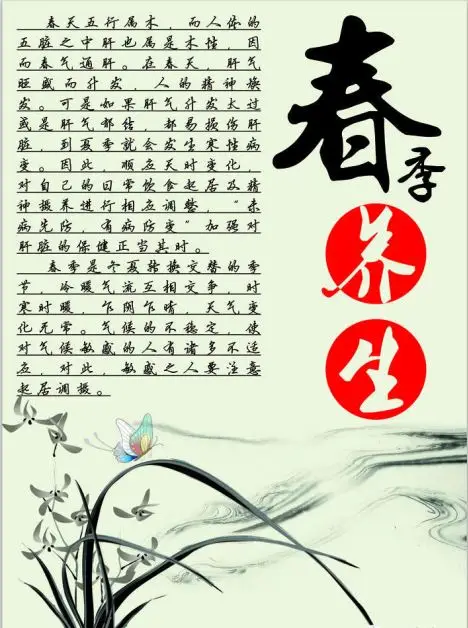 春季
养
生
春天五行属木，而人体的
五脏之中肝也属是木性，因
而春气通肝。在春天，肝气
旺盛而升发，人的精神焕
发。可是如果肝气升发太过
或是肝气郁结，都易损伤肝
脏，到夏季就会发生寒性病
变。因此，顺应天时变化，
对自己的日常饮食起居及精
神摄养进行相应调整，“未
病先防，有病防变”加强对
肝脏的保健正当其时。
春季是冬夏转换交替的季
节，冷暖气流互相交争，时
寒时暖，乍阴乍晴，天气变
化无常。气候的不稳定，使
对气候敏感的人有诸多不适
应，对此，敏感之人要注意
起居调摄。